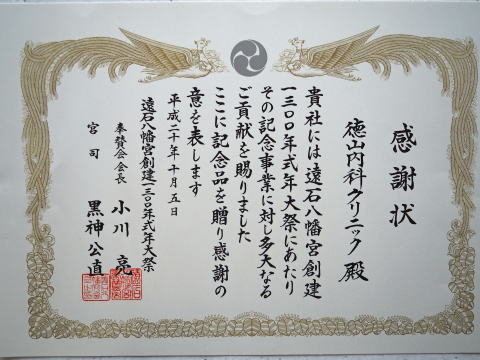 感謝状
徳山内科クリニック殿
貴社には遠石八幡宮創建
一三〇〇年式年大祭にあたり
その記念事業に対し多大なる
ご貢献を賜りました
ここに記念品を贈り感謝の
意を表します
平成二十年十月五日
遠石八幡宮創建一三〇〇年式年大祭
奉賛会会長 小川亮
宮司 黒神公直